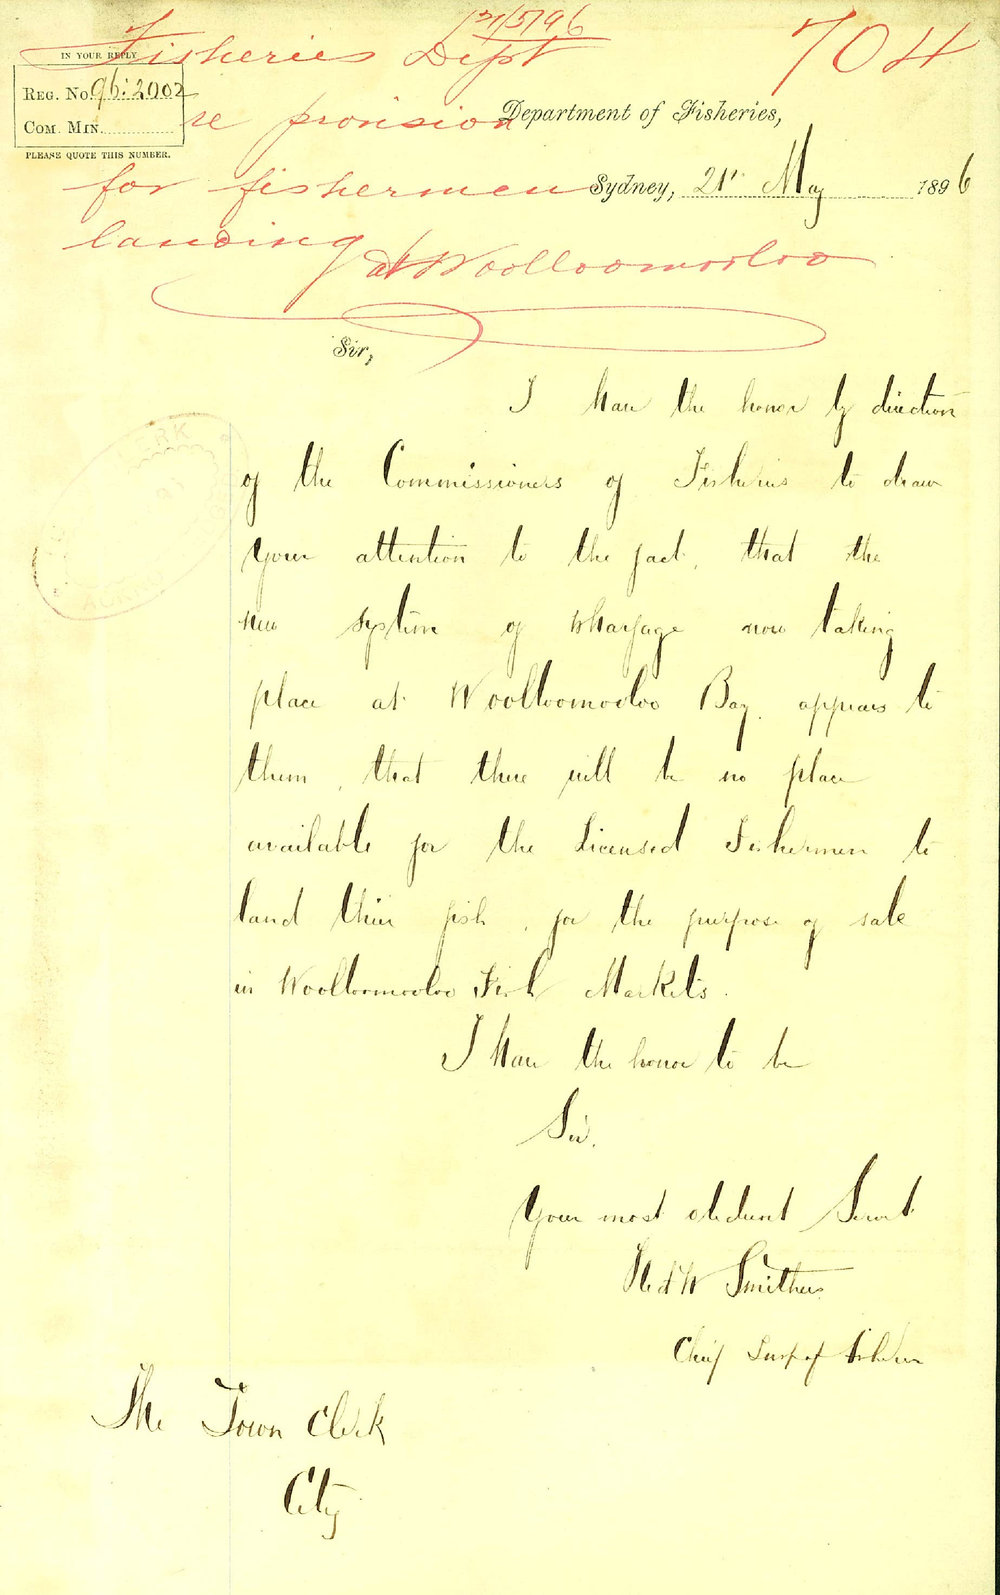 21/5/96
Fisheries Dept
704
IN YOUR REPLY
REG. No. 96:2002
COM. MIN.
PLEASE QUOTE THIS NUMBER.
re provision
Department of Fisheries,
for fishermen
Sydney, 21st May 1896
landing at Woolloomooloo
Sir,
I have the honor by direction
of the Commissioners of Fisheries to draw
your attention to the fact, that the
new system of wharfage now taking
place at Woolloomooloo Bay, appears to
them, that there will be no place
available for the Licensed Fishermen to
land their fish, for the purpose of sale
in Woolloomooloo Fish Markets.
I have the honor to be
Sir,
Your most obedient Servt
Smithers
Chief Insp of Fisheries
The Town Clerk
City
CLERK